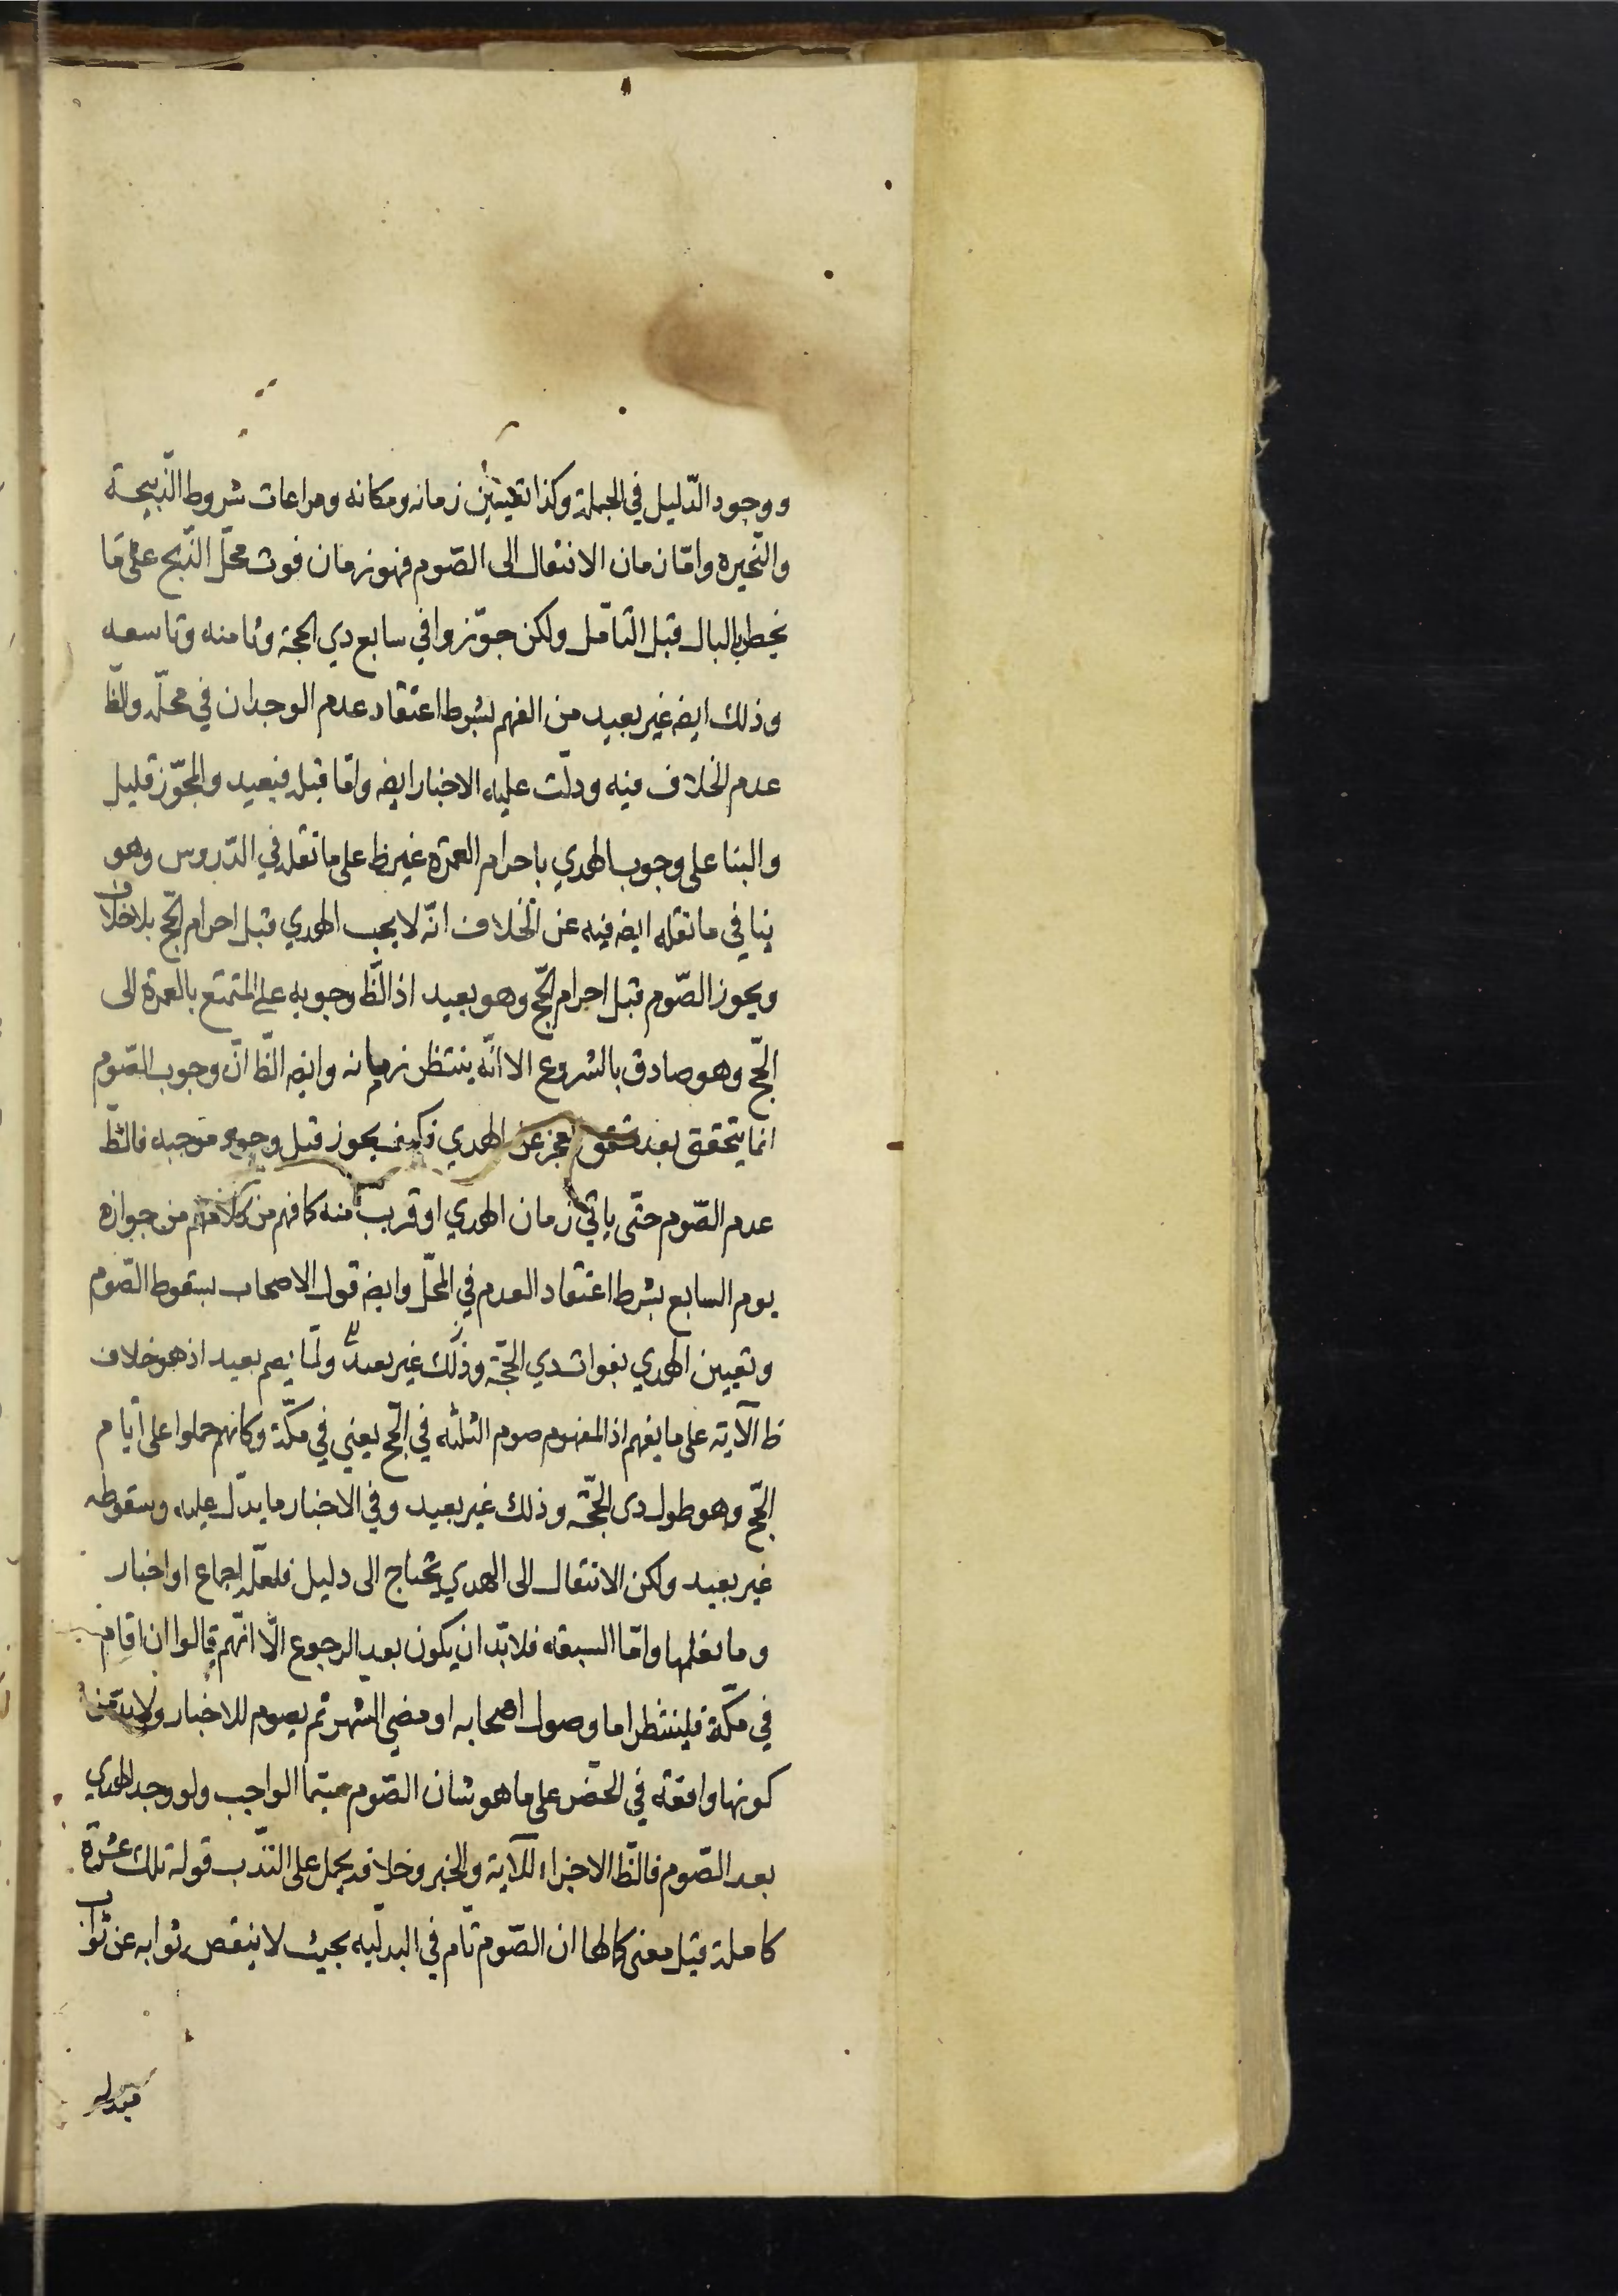 ووجود الدّليل في الجملة وكذا تعيين زمانه ومكانه ومراعات شروط الذّبيحة
والنّحيره وامّا زمان الانتقال الى الصّوم فهو زمان فوت محلّ الذّبح على ما
يخطر بالبال قبل التأمّل ولكن جوّزوا في سابع ذي الحجة وثامنه وتاسعه
وذلك ايضه غير بعيد من الفهم بشرط اعتقاد عدم الوجدان في محلّه والظّ
عدم الخلاف فيه ودلّت عليه الاخبار ايضه وامّا قبله فبعيد والمجوّز قليل
والبنا على وجوب الهدي باحرام العمرة غير ظ على ما نقله في الدّروس وهو
ينافي ما نقله ايضه فيه عن الخلاف انّه لا يجب الهدي قبل احرام الحجّ بلا خلاف
ويجوز الصّوم قبل احرام الحجّ وهو بعيد اذ الظّ وجوبه على المتمتع بالعمرة الى
الحجّ وهو صادق بالشروع الا انّه ينتظر زمانه وايضه الظّ انّ وجوب الصّوم
انما يتحقق بعد تحقق العجز عن الهدي فكيف يجوز قبل وجود موجبه فالظّ
عدم الصّوم حتّى ياتي زمان الهدي او قريب منه كما فهم من كلامهم من جوازه
يوم السابع بشرط اعتقاد العدم في المحلّ وايضه قول الاصحاب بسقوط الصّوم
وتعيين الهدي بفوات ذي الحجّة وذلك غير بعيد ولمّا يصم بعيد اذ هو خلاف
ظ الآية على ما يفهم اذ المفهوم صوم الثلثه في الحجّ يعني في مكّة وكانهم حملوا على ايّام
الحجّ وهو طول ذى الحجّة وذلك غير بعيد وفي الاخبار ما يدلّ عليه وسقوطه
غير بعيد ولكن الانتقال الى الهدي يحتاج الى دليل فلعلّه اجماع او اخبار
وما نعلمها وامّا السبعة فلا بدّ ان يكون بعد الرجوع الّا انّهم قالوا ان اقام
في مكّة فلينتظر اما وصول اصحابه او مضي الشهر ثم يصوم للاخبار ولا بدّ من
كونها واقعة في الحضر على ما هو شان الصّوم سيّما الواجب ولو وجد الهدي
بعد الصّوم فالظّ الاجزاء للآية والخبر وخلافه يحمل على النّدب قوله تلك عشرة
كاملة قيل معنى كمالها ان الصّوم تام في البدليّه بحيث لا ينقص ثوابه عن ثواب
مبدله